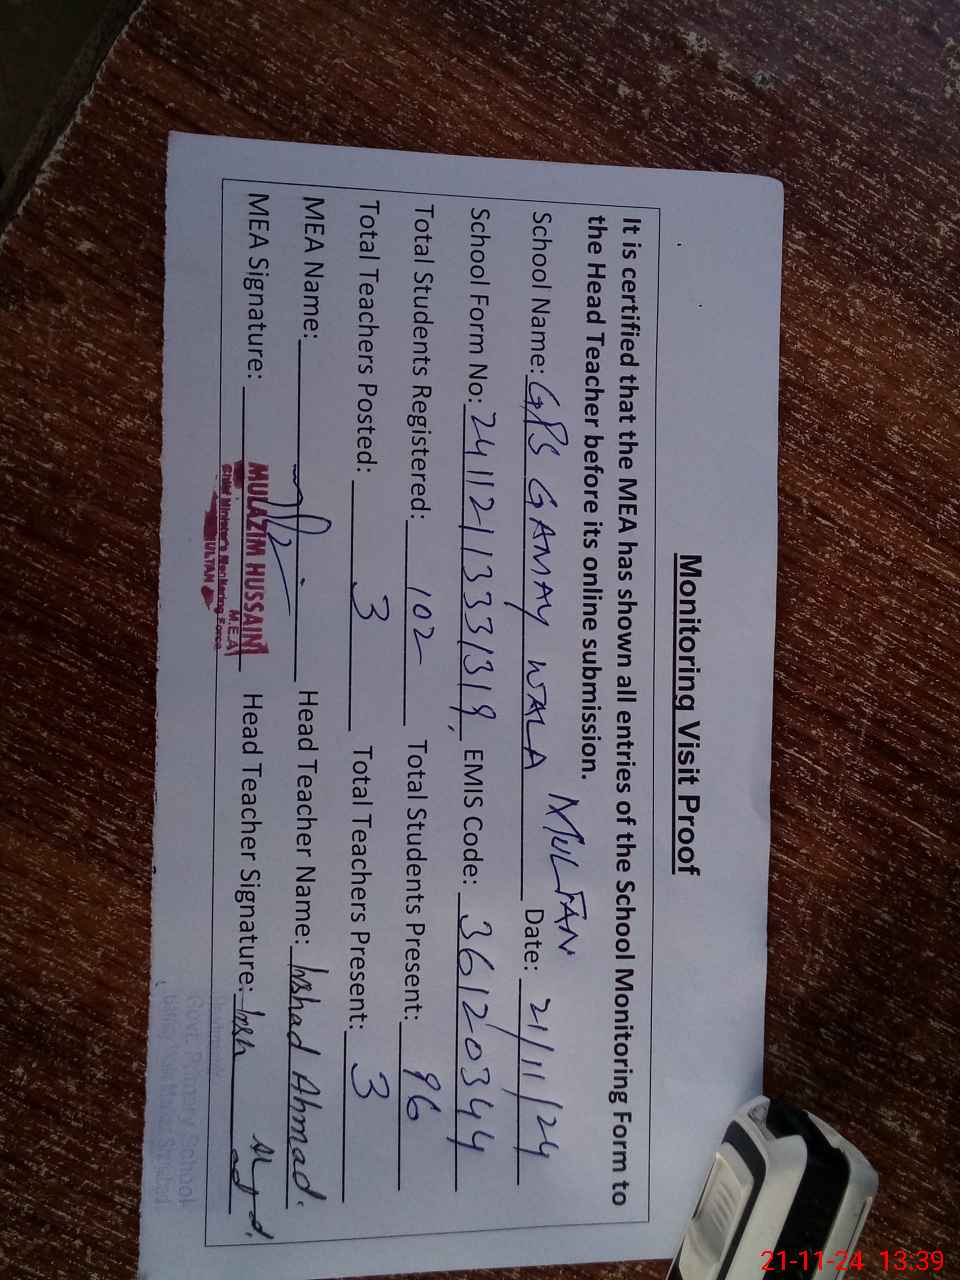 Monitoring Visit Proof
It is certified that the MEA has shown all entries of the School Monitoring Form to
the Head Teacher before its online submission.
MULTAN
School Name: GPS GAMAY WALA Date: 21/11/24
School Form No: 241121133319, EMIS Code: 36120344
Total Students Registered: 102 Total Students Present: 96
Total Teachers Posted: 3 Total Teachers Present: 3
MEA Name: Head Teacher Name: Irshad Ahmad.
MEA Signature: Head Teacher Signature:
MULAZIM HUSSAIN
M.E.A
Chief Minister's Monitoring Force
MULTAN
Govt. Primary School
21-11-24 13:39